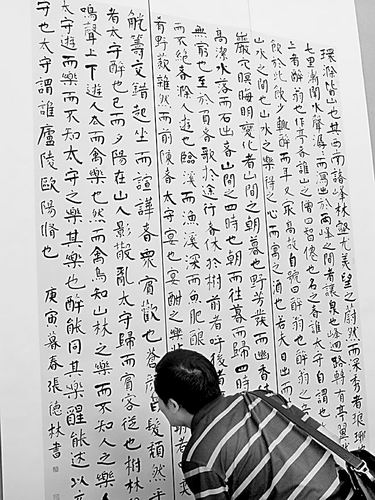 環滁皆山也其西南諸峰林壑尤美望之蔚然而深秀者琅琊
七里漸聞水聲潺潺而瀉出於兩峰之間者讓泉也峰迴路轉有亭翼
上者醉翁也作亭者誰山之僧智僊也名之者誰太守自謂也
飲於此飲少輒醉而年又最高故自號曰醉翁也醉翁之意
山水之間也山水之樂得之心而寓之酒也若夫日出而
巖穴暝晦明變化者山間之朝暮也野芳發而幽香
高潔水落而石出者山間之四時也朝而往暮而歸四時
無窮也至於負者歌於途行者休於樹前者呼後者
而不絕者滁人遊也臨溪而漁溪深而魚肥釀
肴野蔌雜然而前陳者太守宴也宴酣之樂
觥籌交錯起坐而諠譁者眾賓歡也蒼顏白髮頹然乎
者太守醉也已而夕陽在山人影散亂太守歸而賓客從也樹林
鳴聲上下遊人去而禽樂也然而禽鳥知山林之樂而不知人之樂人
太守遊而樂而不知太守之樂其樂也醉能同其樂醒能述以文
守也太守謂誰廬陵歐陽脩也 庚寅暮春張德林書